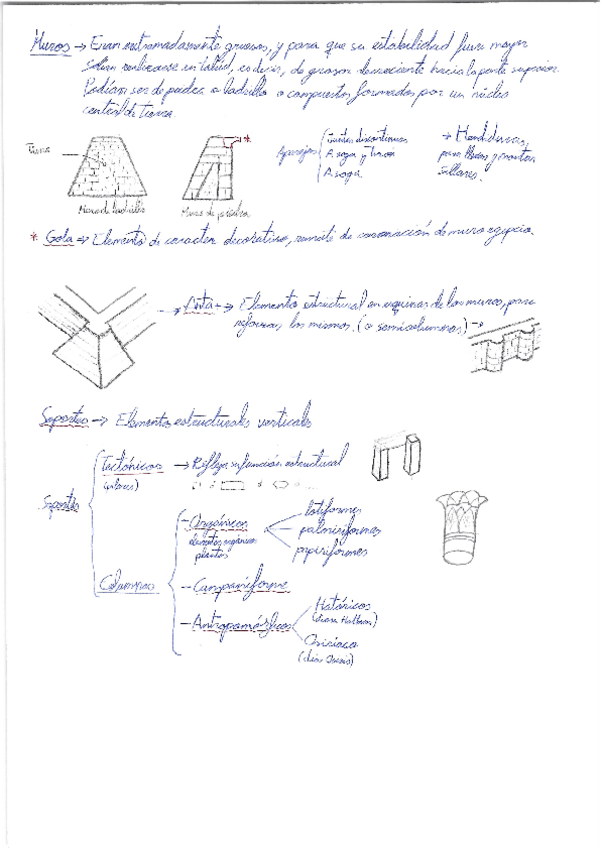 Muros → Eran extremadamente gruesos, y para que su estabilidad fuera mayor
solían realizarse en talud, es decir, de grosor decreciente hacia la parte superior.
Podían ser de piedra o ladrillo o compuestos formados por un núcleo
central de tierra
Tierra
Muros de ladrillo
Muros de piedra
*
Aparejos
Juntas discontinuas
A soga y tizón
A soga.
→ Hendiduras,
para llevar y montar
sillares.
* Gola → Elemento de caracter decorativo, remate de coronación de muro egipcio.
→ Anta → Elemento estructural en esquinas de los muros, para
reforzar los mismos. (o semicolumnas) →
Soportes → Elementos estructurales verticales
Soportes
Tectónicos → Refleja su función estructural
(pilares)
Columnas
- Orgánicos
elementos orgánicos
plantas
lotiformes
palmiformes
papiriformes
- Campaniforme
- Antropomórficos
Hatóricos
(diosa Hathor)
Osiriaca
(dios Osiris)